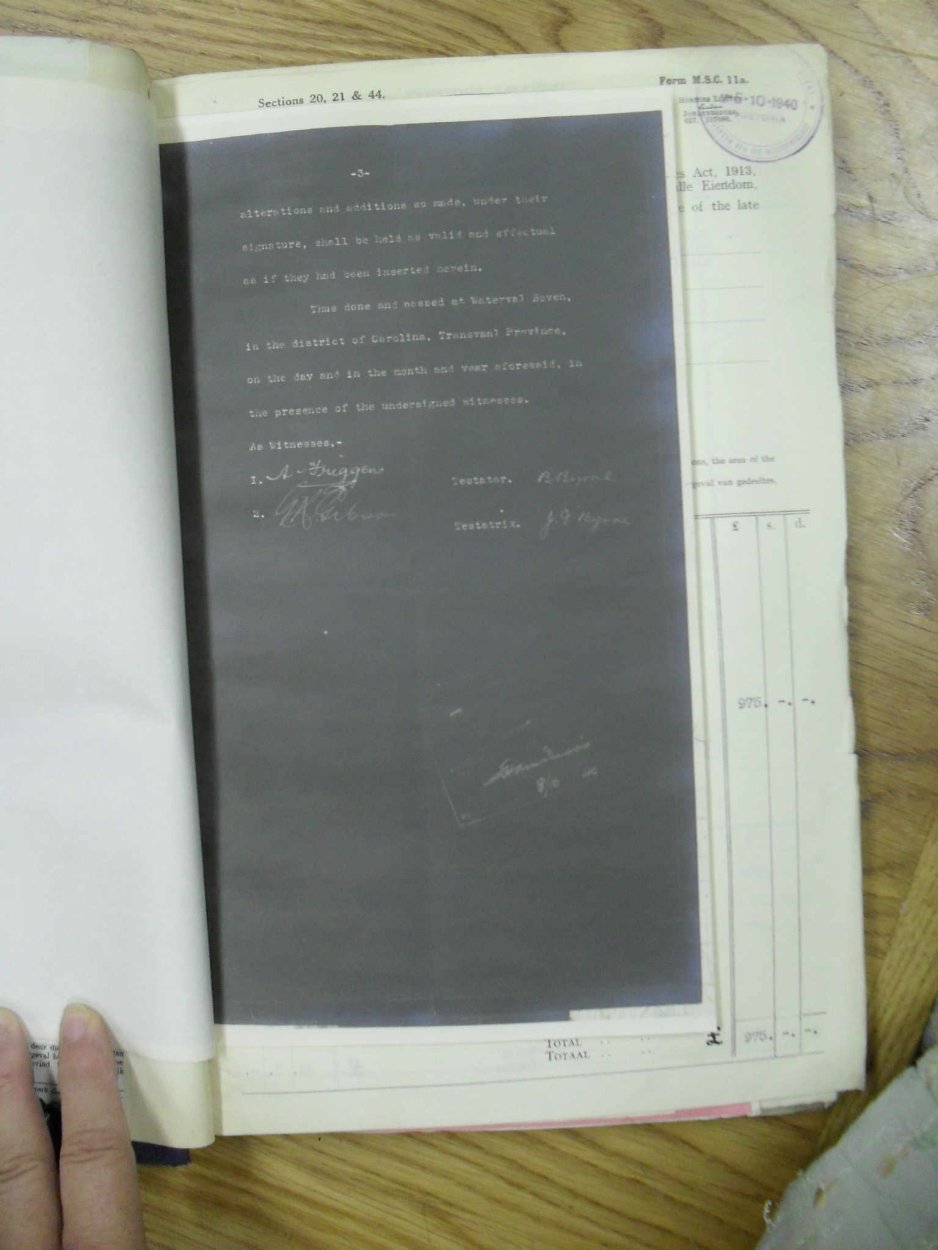 Sections 20, 21 & 44.
Form M.S.C. 11a.
-6-10-1940
-3-
alterations and additions so made, under their
signature, shall be held as valid and effectual
as if they had been inserted herein.
Thus done and passed at Waterval Boven,
in the district of Carolina, Transvaal Province,
on the day and in the month and year aforesaid, in
the presence of the undersigned witnesses.
As Witnesses,-
1. A
2.
Testator. B Byrne
Testatrix. J. G Byrne
Act, 1913,
Eiendom,
of the late
the area of the
van gedeeltes,
£ s. d.
975. -. -.
TOTAL .. .. £ 975. -. -.
TOTAAL .. ..